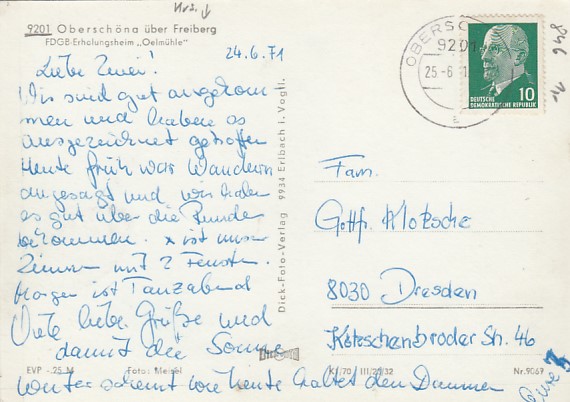 9201 Oberschöna über Freiberg
FDGB-Erholungsheim „Oelmühle"
24.6.71
Liebe Zwei!
Wir sind gut angekom
men und haben es
ausgezeichnet getroffen
Heute früh war Wandern
angesagt und wir haben
es gut über die Runden
bekommen. x ist unser
Zimmer mit 2 Fenster.
Morgen ist Tanzabend
Viele liebe Grüße und
damit die Sonne
weiter scheint wie heute haltet den Daumen
EVP -.25 M Foto: Meisel
Nr. 9069
Dick-Foto-Verlag 9934 Erlbach i. Vogtl.
OBERSCHÖ
9201
25.-6.
a
10
DEUTSCHE
DEMOKRATISCHE REPUBLIK
846
Fam.
Gottfr. Klotzsche
8030 Dresden
Kötzschenbroder Str. 46